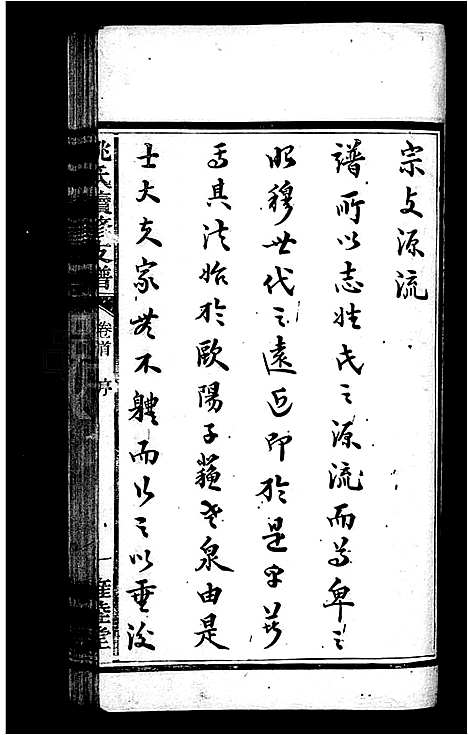 宗支源流
譜所以志姓氏之源流而尊卑之
昭穆世代之遠近即於是乎著
焉其法始於歐陽子蘇老泉由是
士大夫家無不體而行之以垂後
姚氏續修支譜 卷首 序 一 雍睦堂